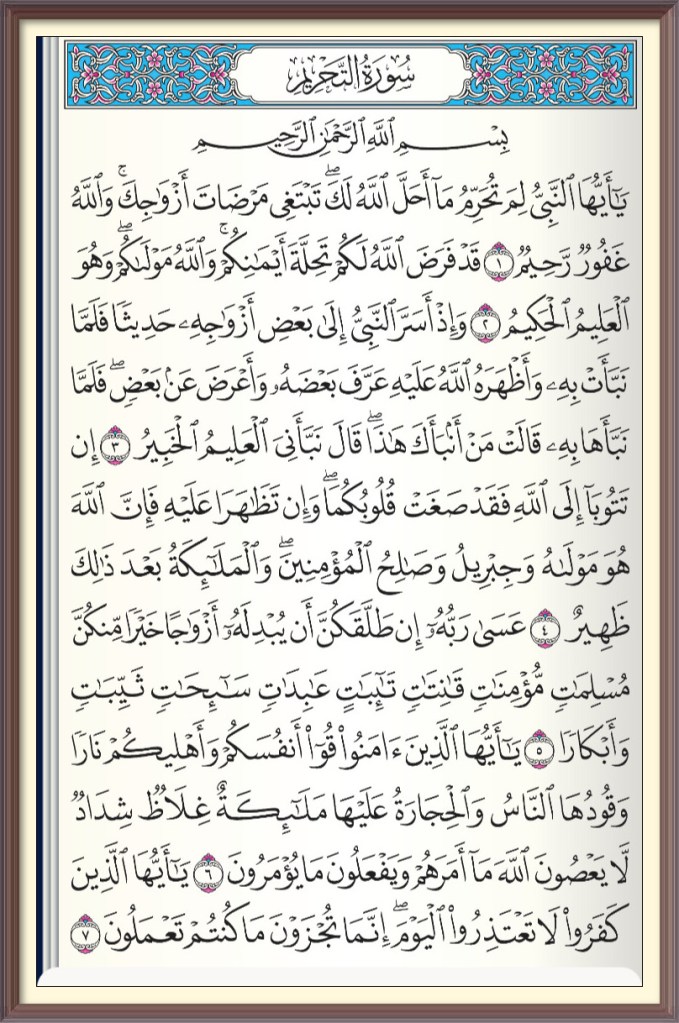 سُورَةُ التَّحۡرِيمِ
بِسۡمِ ٱللَّهِ ٱلرَّحۡمَٰنِ ٱلرَّحِيمِ
يَٰٓأَيُّهَا ٱلنَّبِيُّ لِمَ تُحَرِّمُ مَآ أَحَلَّ ٱللَّهُ لَكَۖ تَبۡتَغِي مَرۡضَاتَ أَزۡوَٰجِكَۚ وَٱللَّهُ
غَفُورٞ رَّحِيمٞ ١ قَدۡ فَرَضَ ٱللَّهُ لَكُمۡ تَحِلَّةَ أَيۡمَٰنِكُمۡۚ وَٱللَّهُ مَوۡلَىٰكُمۡۖ وَهُوَ
ٱلۡعَلِيمُ ٱلۡحَكِيمُ ٢ وَإِذۡ أَسَرَّ ٱلنَّبِيُّ إِلَىٰ بَعۡضِ أَزۡوَٰجِهِۦ حَدِيثٗا فَلَمَّا
نَبَّأَتۡ بِهِۦ وَأَظۡهَرَهُ ٱللَّهُ عَلَيۡهِ عَرَّفَ بَعۡضَهُۥ وَأَعۡرَضَ عَنۢ بَعۡضٖۖ فَلَمَّا
نَبَّأَهَا بِهِۦ قَالَتۡ مَنۡ أَنۢبَأَكَ هَٰذَاۖ قَالَ نَبَّأَنِيَ ٱلۡعَلِيمُ ٱلۡخَبِيرُ ٣ إِن
تَتُوبَآ إِلَى ٱللَّهِ فَقَدۡ صَغَتۡ قُلُوبُكُمَاۖ وَإِن تَظَٰهَرَا عَلَيۡهِ فَإِنَّ ٱللَّهَ
هُوَ مَوۡلَىٰهُ وَجِبۡرِيلُ وَصَٰلِحُ ٱلۡمُؤۡمِنِينَۖ وَٱلۡمَلَٰٓئِكَةُ بَعۡدَ ذَٰلِكَ
ظَهِيرٌ ٤ عَسَىٰ رَبُّهُۥٓ إِن طَلَّقَكُنَّ أَن يُبۡدِلَهُۥٓ أَزۡوَٰجًا خَيۡرٗا مِّنكُنَّ
مُسۡلِمَٰتٖ مُّؤۡمِنَٰتٖ قَٰنِتَٰتٖ تَٰٓئِبَٰتٍ عَٰبِدَٰتٖ سَٰٓئِحَٰتٖ ثَيِّبَٰتٖ
وَأَبۡكَارٗا ٥ يَٰٓأَيُّهَا ٱلَّذِينَ ءَامَنُواْ قُوٓاْ أَنفُسَكُمۡ وَأَهۡلِيكُمۡ نَارٗا
وَقُودُهَا ٱلنَّاسُ وَٱلۡحِجَارَةُ عَلَيۡهَا مَلَٰٓئِكَةٌ غِلَاظٞ شِدَادٞ
لَّا يَعۡصُونَ ٱللَّهَ مَآ أَمَرَهُمۡ وَيَفۡعَلُونَ مَا يُؤۡمَرُونَ ٦ يَٰٓأَيُّهَا ٱلَّذِينَ
كَفَرُواْ لَا تَعۡتَذِرُواْ ٱلۡيَوۡمَۖ إِنَّمَا تُجۡزَوۡنَ مَا كُنتُمۡ تَعۡمَلُونَ ٧